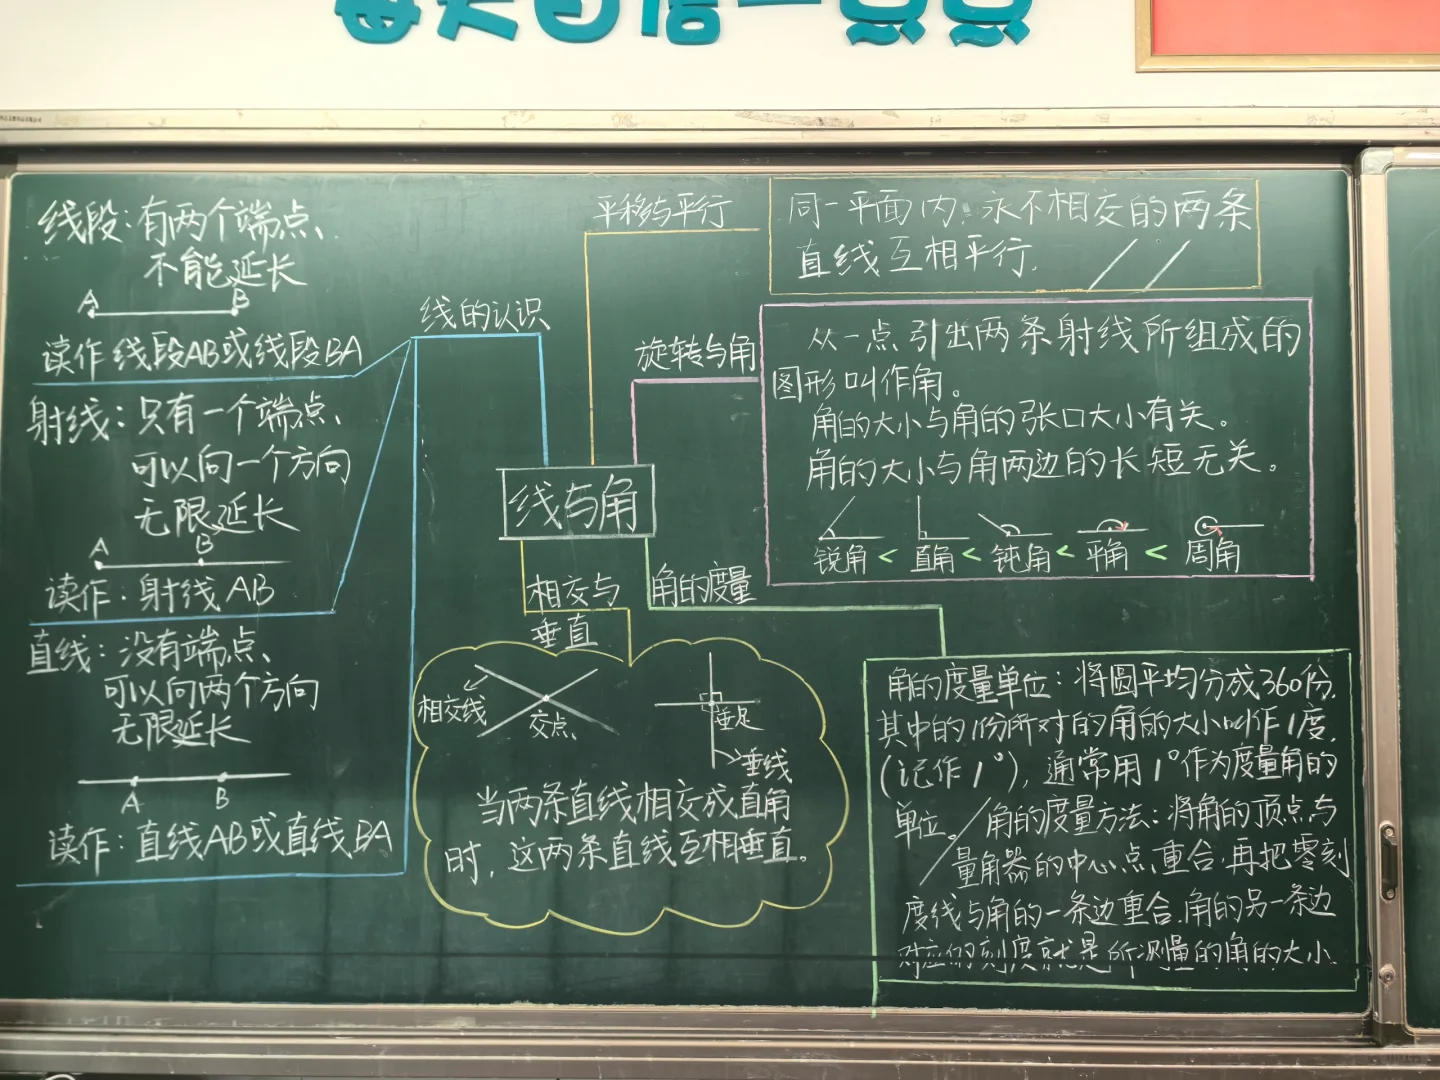 每天自信一点点
线段：有两个端点、
不能延长
A B
读作 线段AB或线段BA
射线：只有一个端点、
可以向一个方向
无限延长
A B
读作：射线 AB
直线：没有端点、
可以向两个方向
无限延长
A B
读作：直线AB或直线BA
线的认识
平移与平行
同一平面内，永不相交的两条
直线互相平行.
旋转与角
从一点引出两条射线所组成的
图形叫作角。
角的大小与角的张口大小有关。
角的大小与角两边的长短无关。
锐角 < 直角 < 钝角 < 平角 < 周角
线与角
相交与
垂直
相交线
交点、
垂足
垂线
当两条直线相交成直角
时，这两条直线互相垂直。
角的度量
角的度量单位：将圆平均分成360份，
其中的1份所对的角的大小叫作1度.
(记作1°)，通常用1°作为度量角的
单位。/角的度量方法：将角的顶点与
量角器的中心点重合，再把零刻
度线与角的一条边重合，角的另一条边
对应的刻度就是所测量的角的大小.